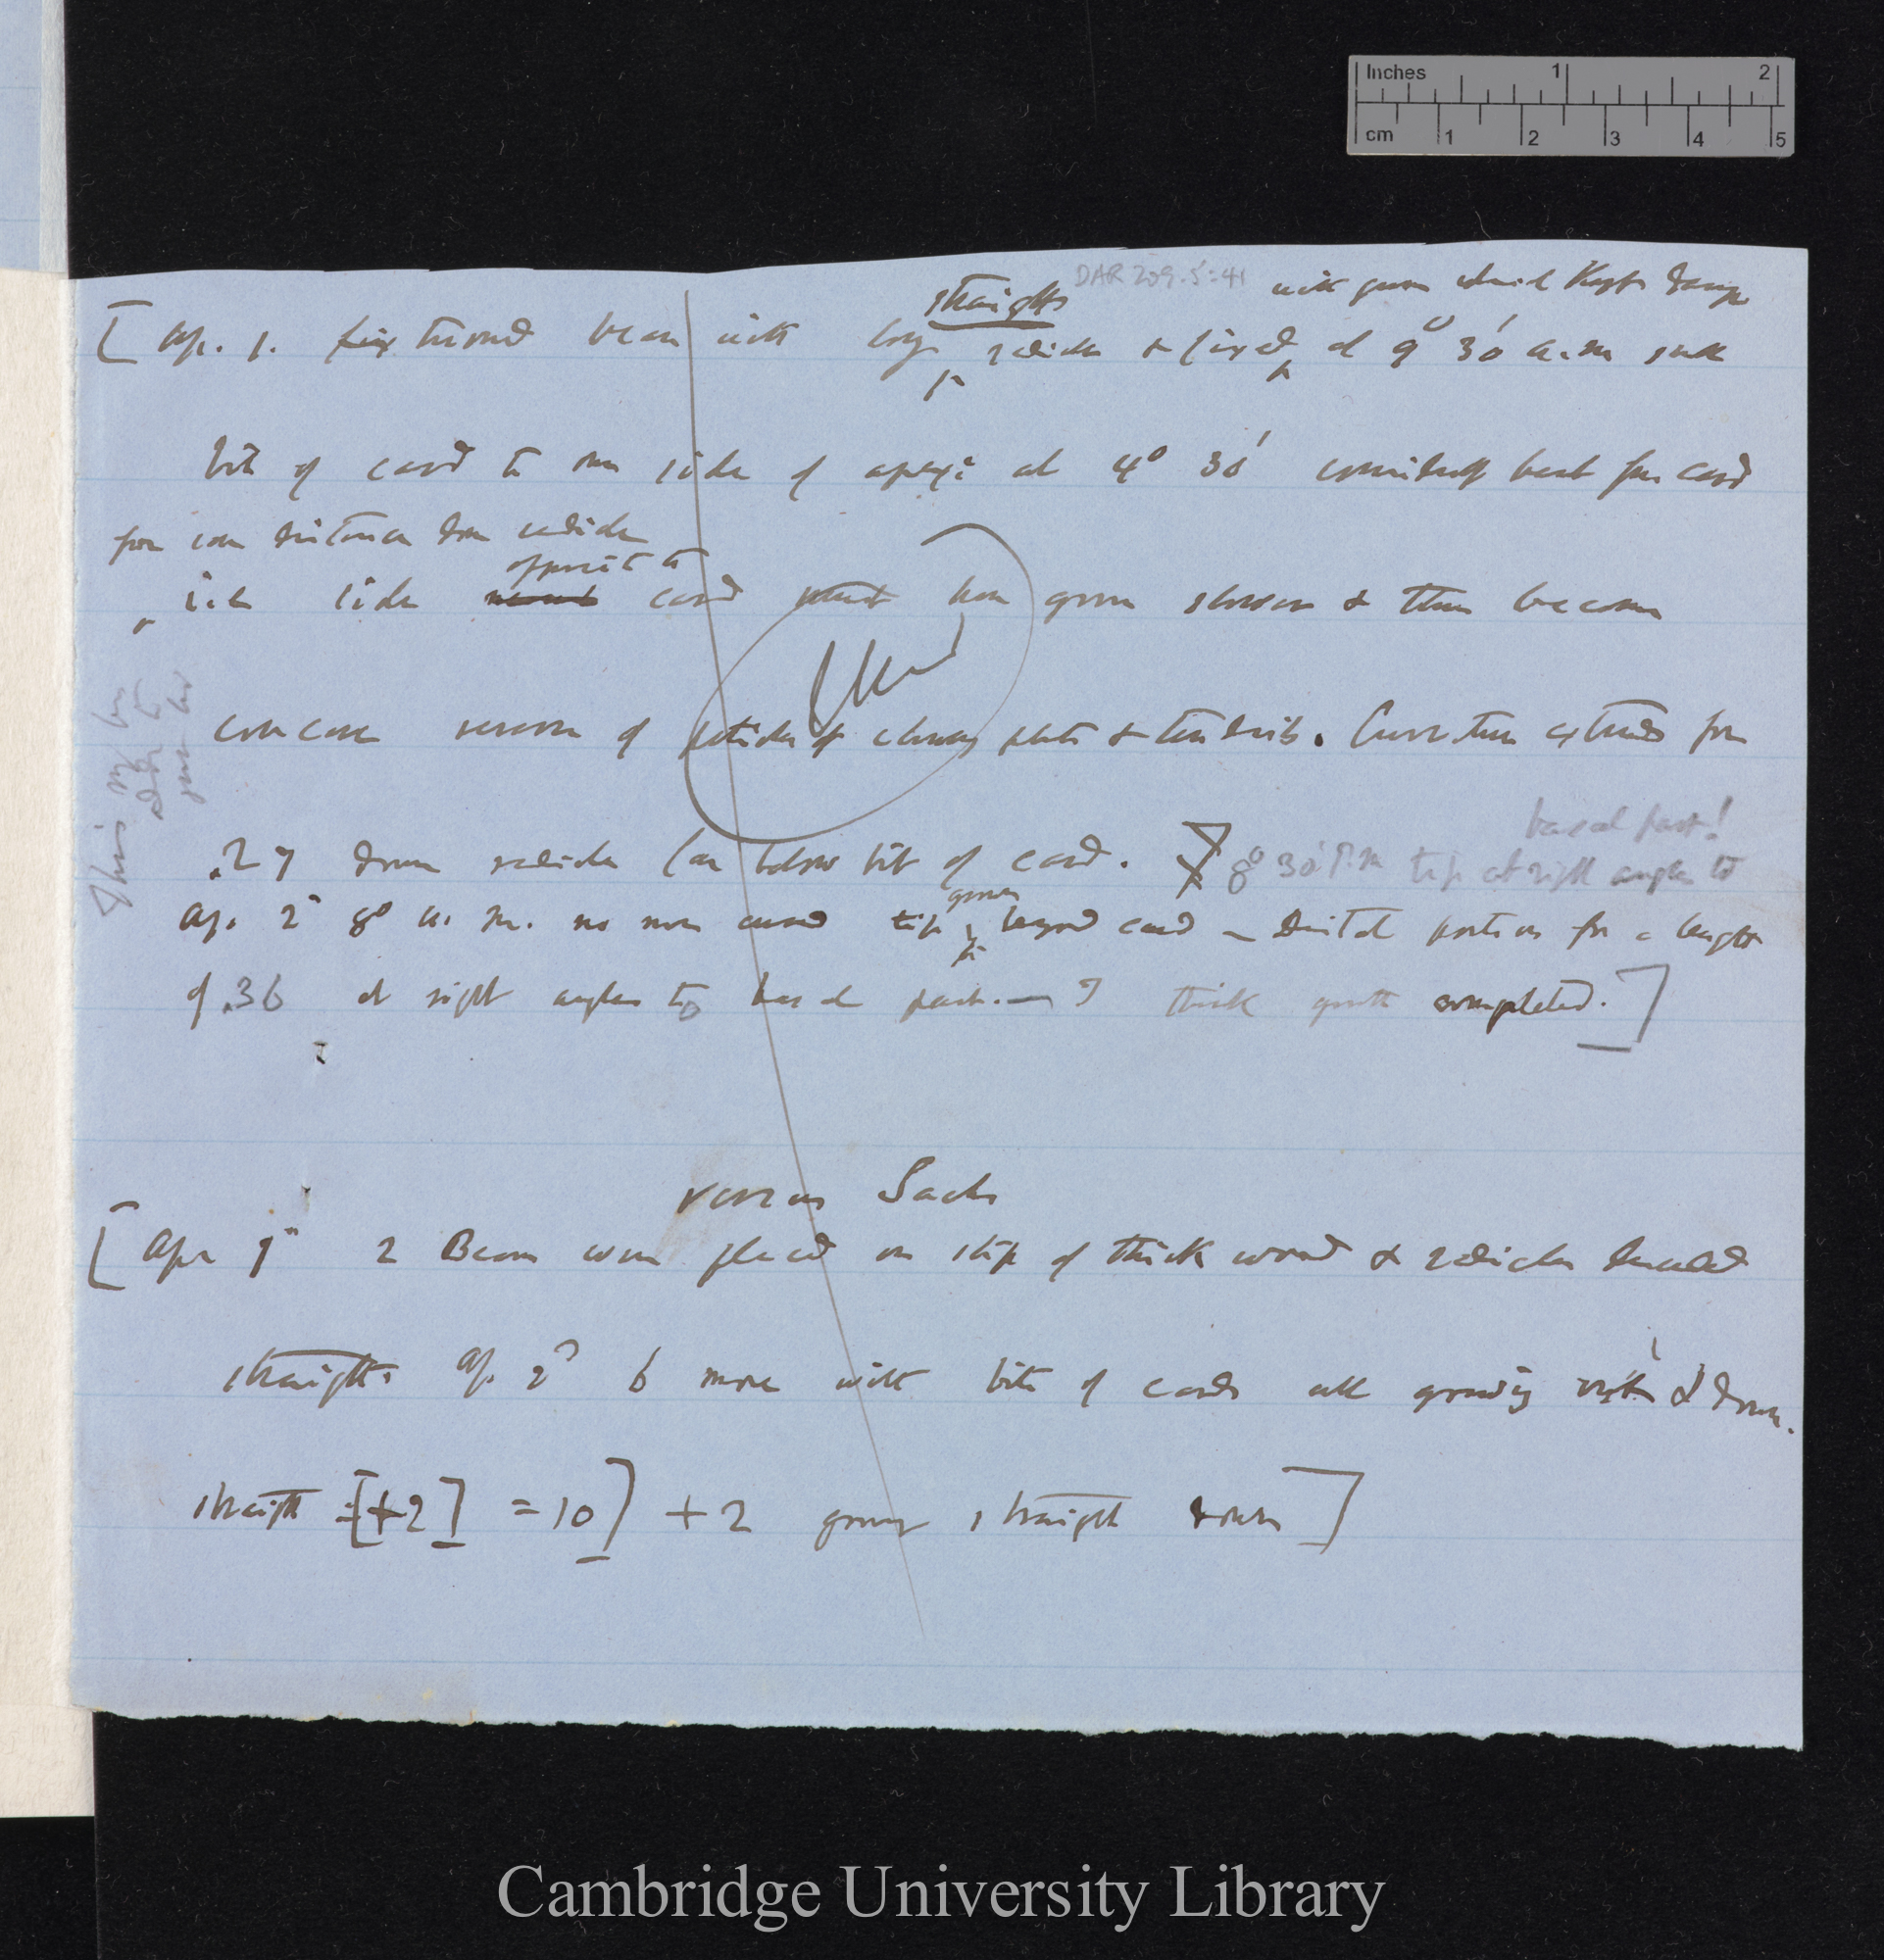 Inches 1 2
cm 1 2 3 4 5
DAR 209.5:41
straight with gum which kept damp
[Ap. 1. bean with long radicle & fixed at 9° 30' a.m
bit of card to one side of apex: at 4° 30' bent from card
for some distance down radicle
opposite to
i.e. side card must have grown slower & thus become
concave reverse of petioles of climbing plants & tendrils. Curvature extends for
basal part!
.27 down radicle (on below bit of card. 8° 30' P.m tip at right angles to
grown
Ap. 2 8° a. m. no more curved tip beyond card — distal portion for a length
of .36 at right angles to basal part. — I think growth completed.]
This may be
added to
versus Sachs
[Apr 1 2 Beans were placed on slip of thick wood & radicles
straight. Ap. 2 6 more with bits of cards all growing right & down.
straight [+2] = 10] + 2 growing straight down]
Cambridge University Library